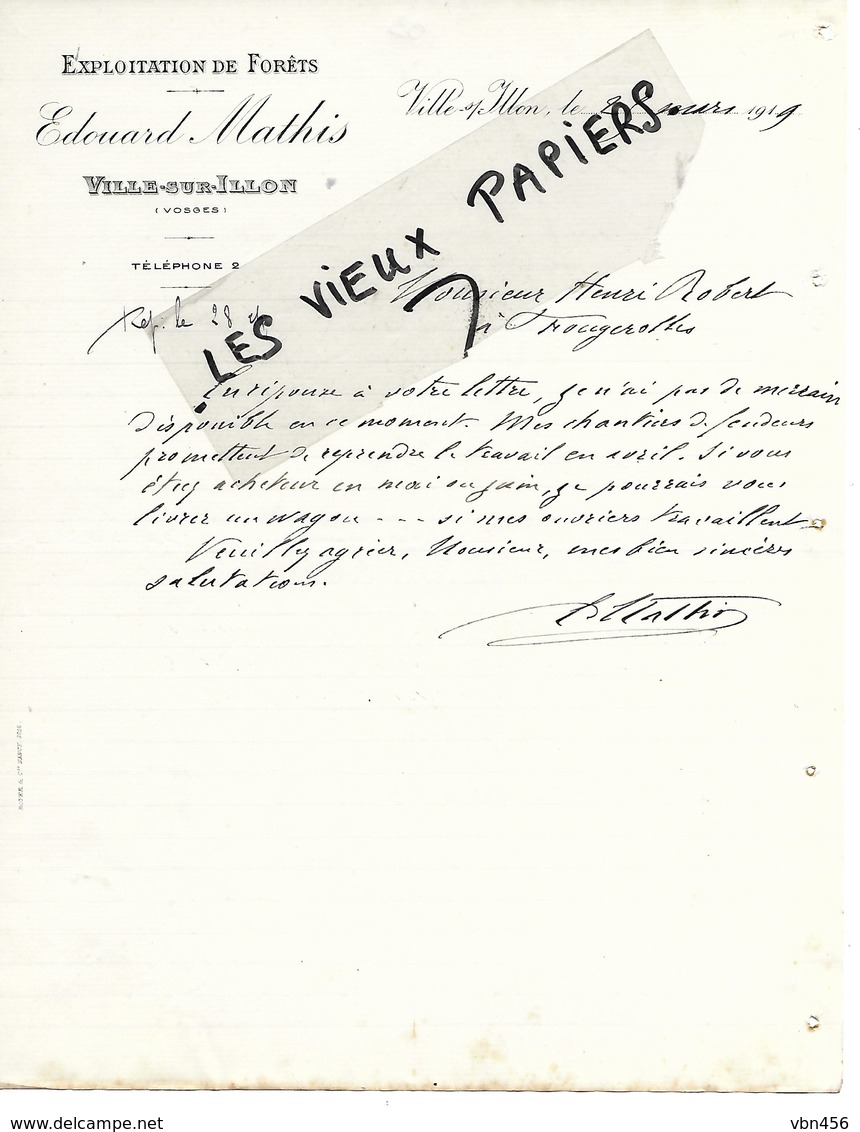 EXPLOITATION DE FORÊTS
Edouard Mathis
VILLE-SUR-ILLON
(VOSGES)
TÉLÉPHONE 2
Ville-s/Illon, le 2 mars 1919
LES VIEUX PAPIERS
Rep. le 28
Monsieur Henri Robert
à Fougerolles
En réponse à votre lettre, je n'ai pas de merrain
disponible en ce moment. Mes chantiers de fendeurs
promettent de reprendre le travail en avril. Si vous
étiez acheteur en mai ou juin, je pourrais vous
livrer un wagon --- si mes ouvriers travaillent
Veuillez agréer, Monsieur, mes bien sincères
salutations.
E Mathis
delcampe.net
vbn456